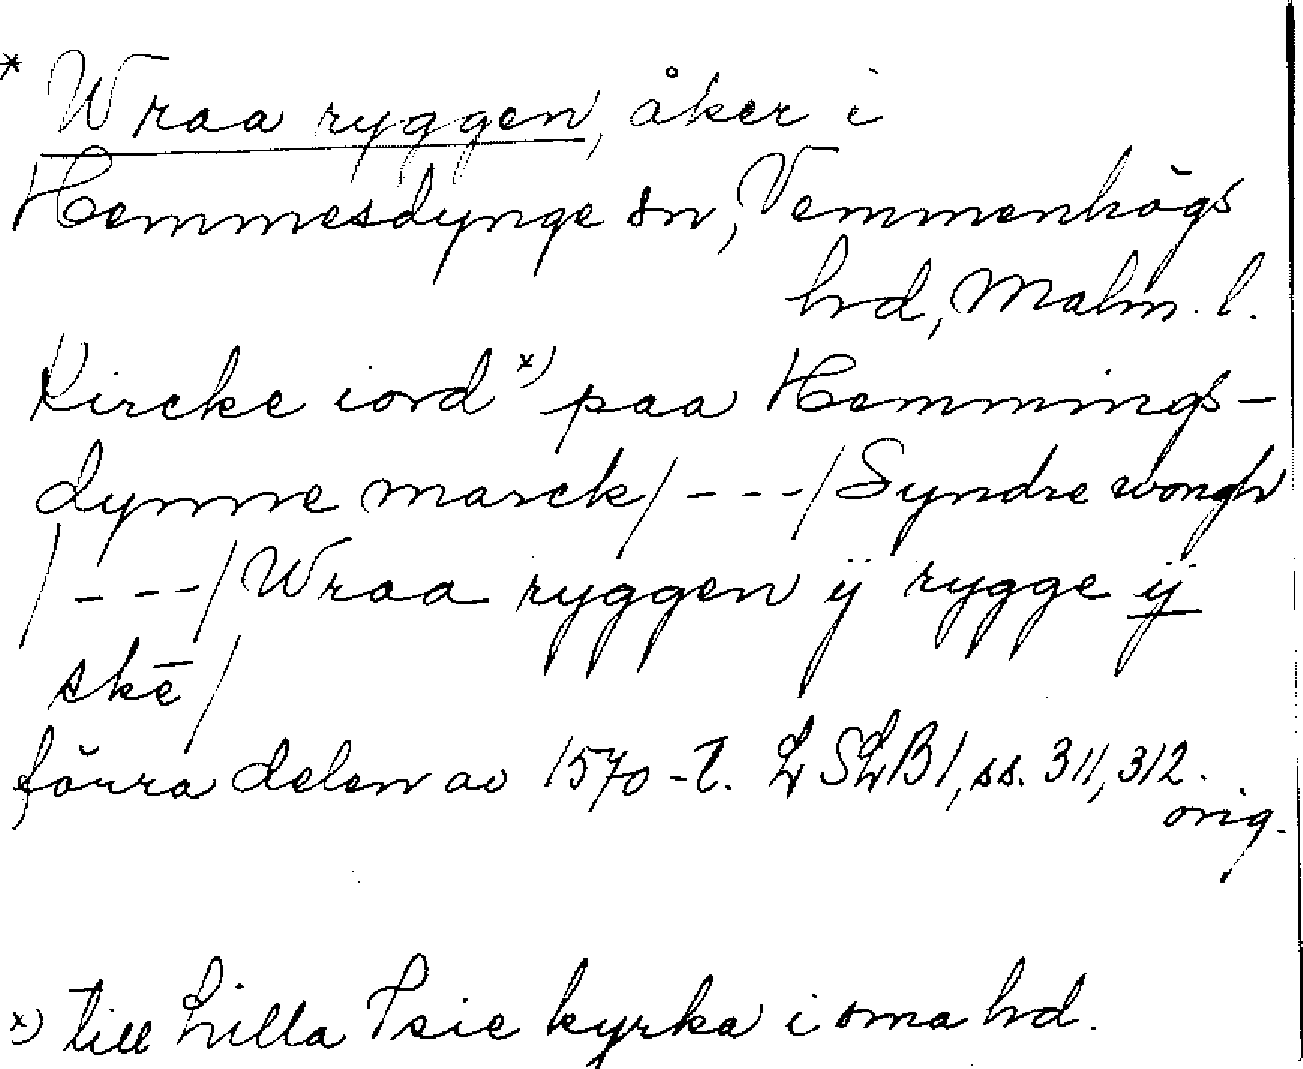 * Wraa ryggen, åker i
Hemmesdynge sn, Vemmenhögs
hd, Malm. l.
Kircke iord x) paa Hemmings-
dynne marck/---/Syndre wongh
/---/Wraa ryggen ÿ rygge ÿ
skē/
förra delen av 1570-t. LSLB1, ss. 311, 312.
orig.
x) till Lilla Isie kyrka i sma hd.